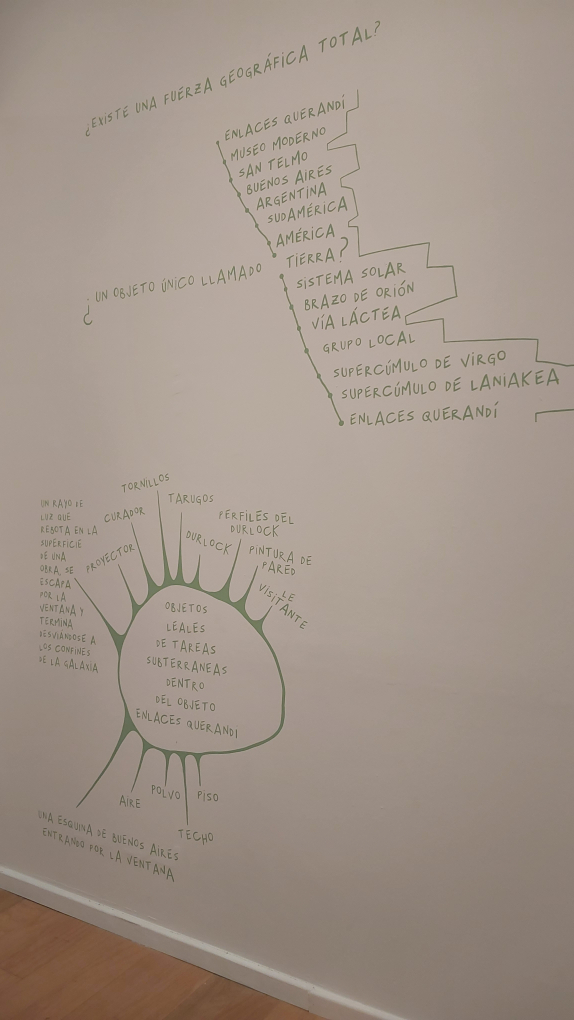 ¿EXISTE UNA FUERZA GEOGRÁFICA TOTAL?
ENLACES QUERANDÍ
MUSEO MODERNO
SAN TELMO
BUENOS AIRES
ARGENTINA
SUDAMÉRICA
AMÉRICA
¿UN OBJETO ÚNICO LLAMADO TIERRA?
SISTEMA SOLAR
BRAZO DE ORIÓN
VÍA LÁCTEA
GRUPO LOCAL
SUPERCÚMULO DE VIRGO
SUPERCÚMULO DE LANIAKEA
ENLACES QUERANDÍ
UN RAYO DE
LUZ QUE
REBOTA EN LA
SUPERFICIE
DE UNA
OBRA, SE
ESCAPA
POR LA
VENTANA Y
TERMINA
DESVIÁNDOSE A
LOS CONFINES
DE LA GALAXIA
PROYECTOR
CURADOR
TORNILLOS
TARUGOS
DURLOCK
PERFILES DEL
DURLOCK
PINTURA DE
PARED
LE
VISITANTE
OBJETOS
LEALES
DE TAREAS
SUBTERRÁNEAS
DENTRO
DEL OBJETO
ENLACES QUERANDI
UNA ESQUINA DE BUENOS AIRES
ENTRANDO POR LA VENTANA
AIRE
POLVO
TECHO
PISO